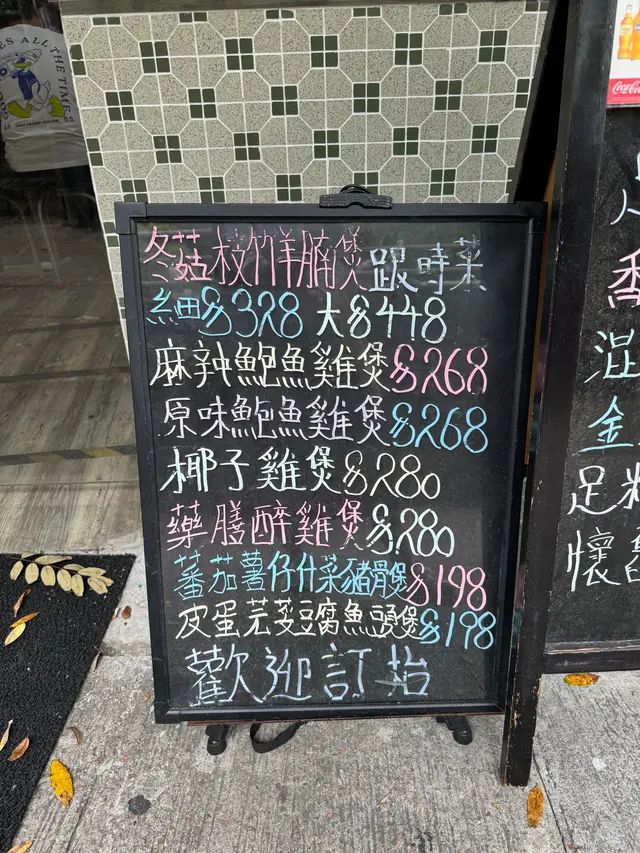 ES ALL THE
TIMES
Coca-Col
冬菇枝竹羊腩煲跟時菜
細$328 大$448
麻辣鮑魚雞煲$268
原味鮑魚雞煲$268
椰子雞煲$280
藥膳醉雞煲$280
蕃茄薯仔什菜豬骨煲$198
皮蛋芫茜豆腐魚頭煲$198
歡迎訂枱
香
混
金
足料
懷舊